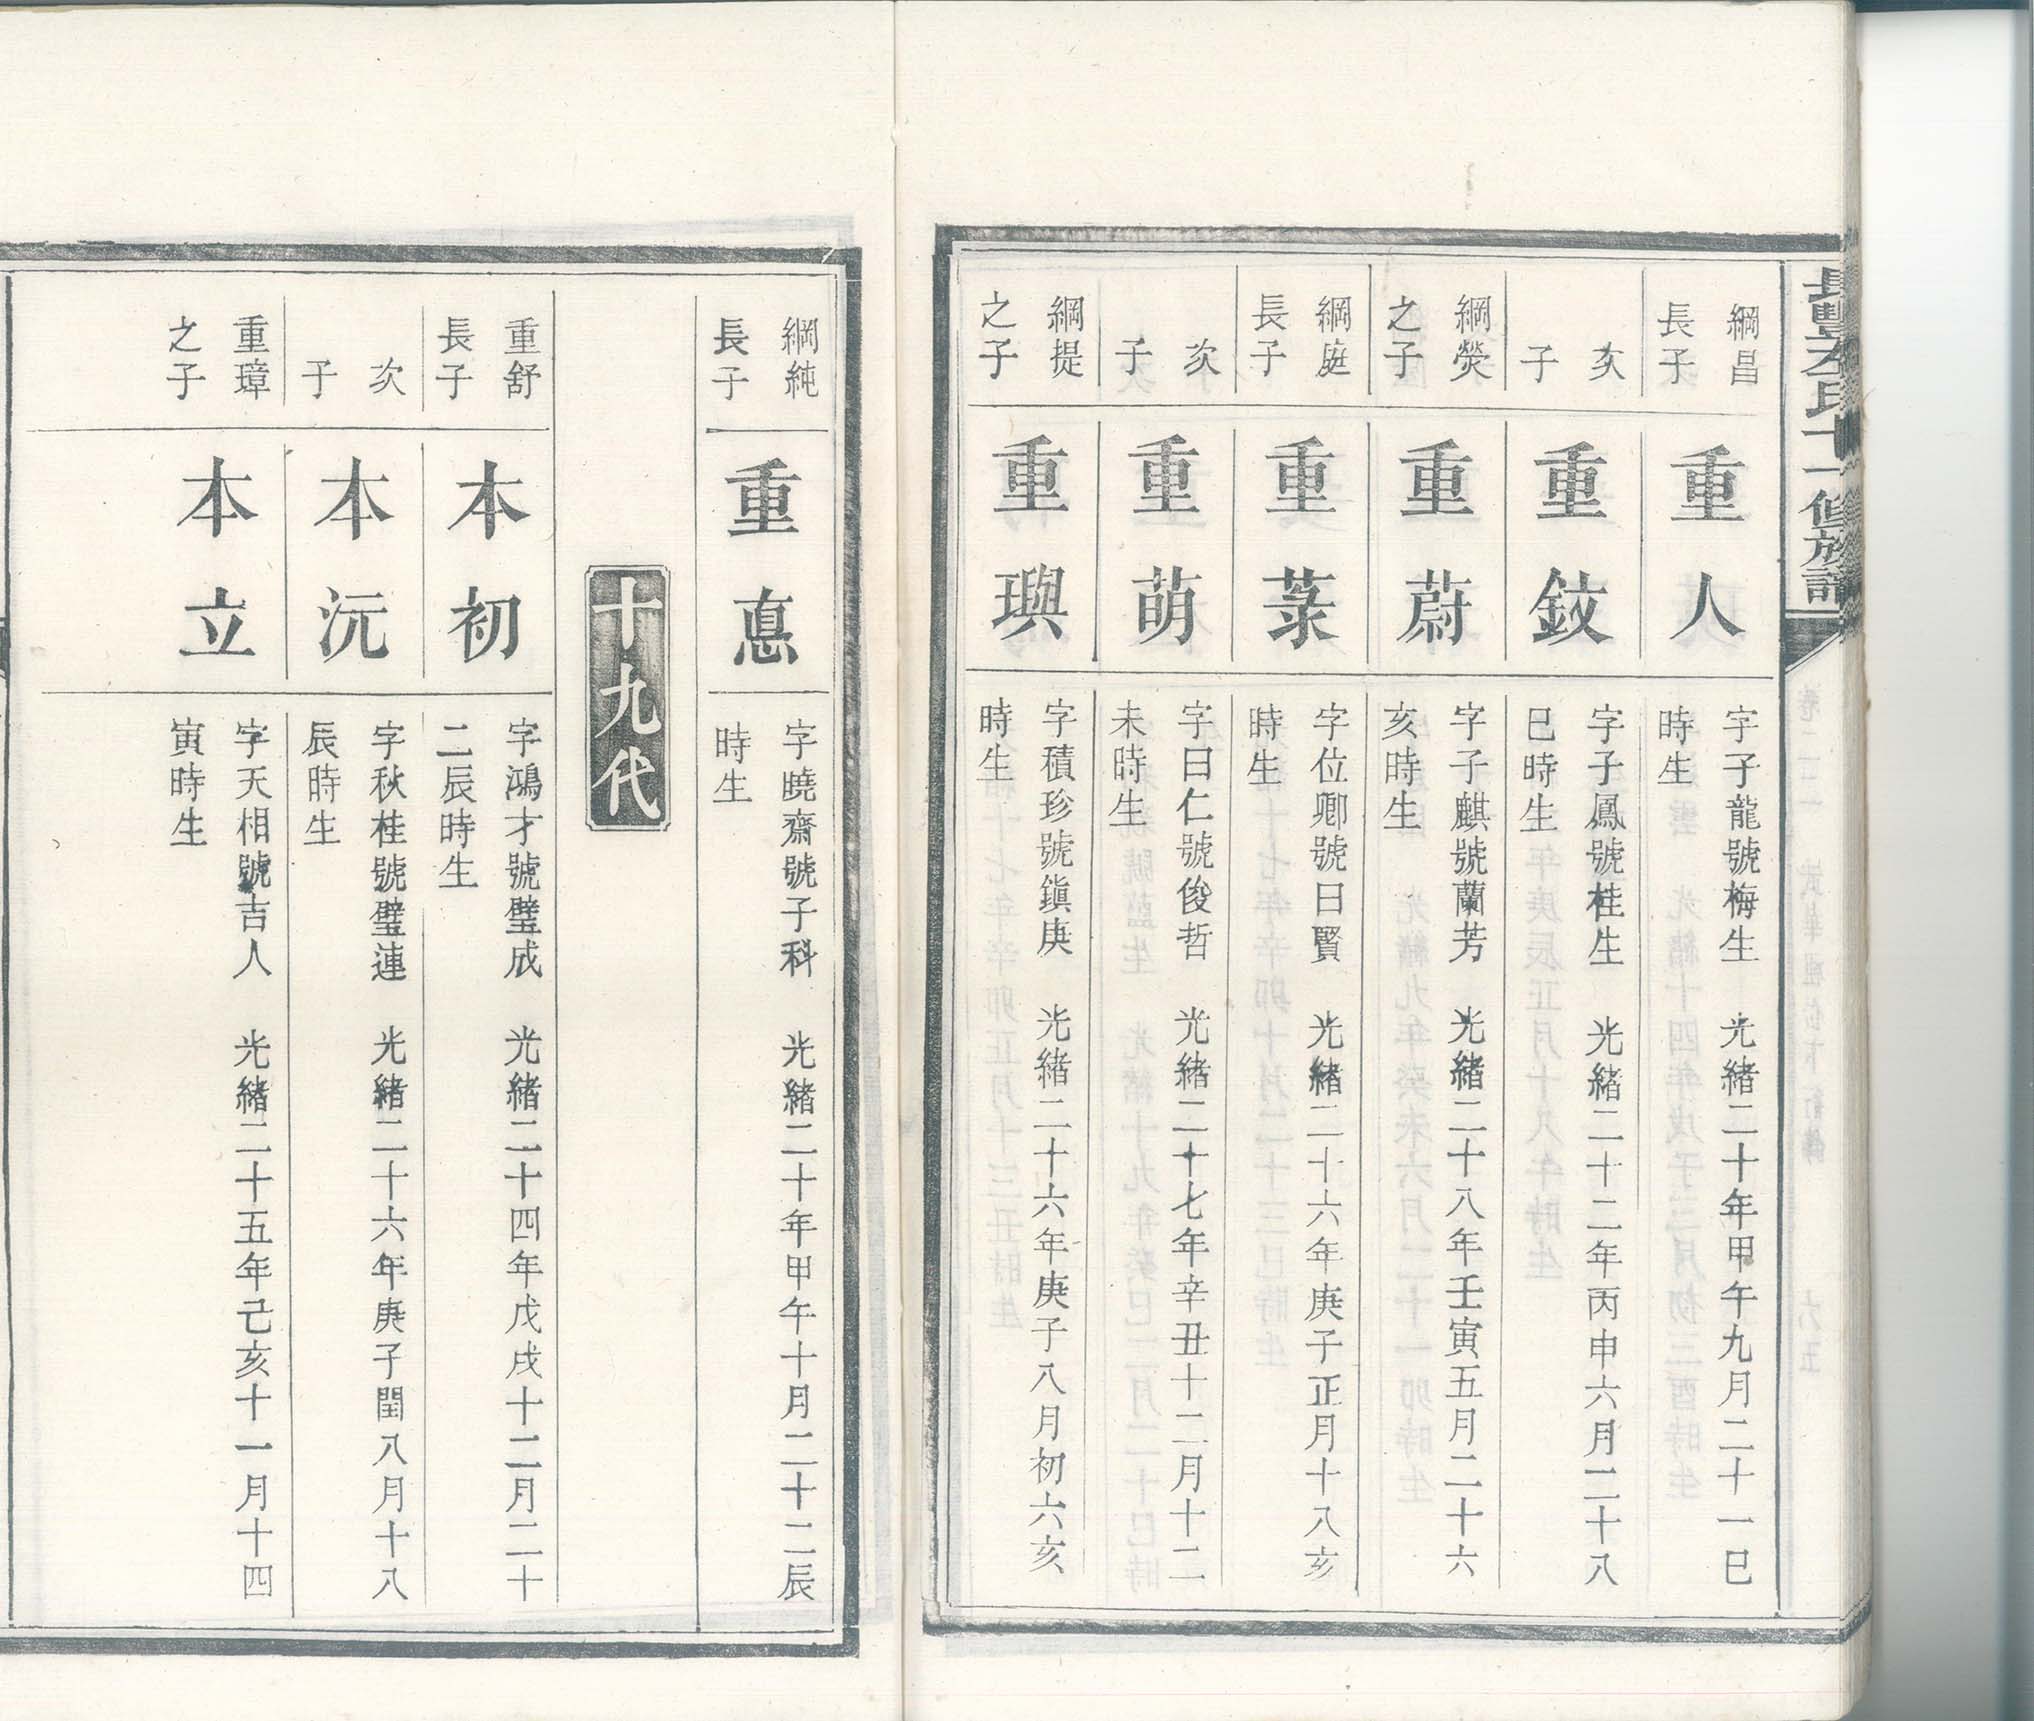 綱昌
長子
重人
字子龍號梅生　光緒二十年甲午九月二十一巳
時生
次
子
重鈘
字子鳳號桂生　光緒二十二年丙申六月二十八
巳時生
綱熒
之子
重蔚
字子麒號蘭芳　光緒二十八年壬寅五月二十六
亥時生
綱庭
長子
重菉
字位卿號日賢　光緒二十六年庚子正月十八亥
時生
次
子
重萌
字日仁號俊哲　光緒二十七年辛丑十二月十二
未時生
綱提
之子
重璵
字積珍號鎮庚　光緒二十六年庚子八月初六亥
時生
綱純
長子
重悳
字曉齋號子科　光緒二十年甲午十月二十二辰
時生
十九代
重舒
長子
本初
字鴻才號璧成　光緒二十四年戊戌十二月二十
二辰時生
次
子
本沅
字秋桂號璧連　光緒二十六年庚子閏八月十八
辰時生
重璋
之子
本立
字天相號吉人　光緒二十五年己亥十一月十四
寅時生